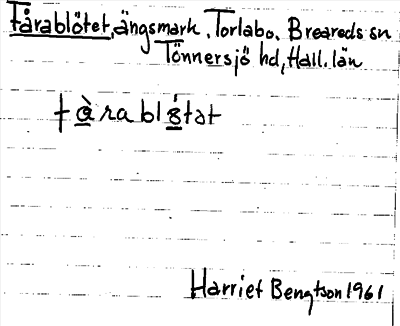 Fårablötet, ängsmark, Torlabo, Breareds sn
Tönnersjö hd, Hall. län
fàrablǿtət
Harriet Bengtson 1961